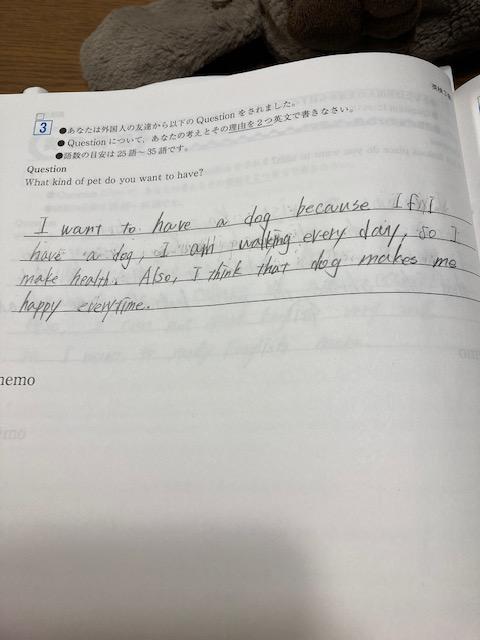 英検3級
3
●あなたは外国人の友達から以下の Question をされました。
● Question について、あなたの考えとその理由を2つ英文で書きなさい。
●語数の目安は 25 語～ 35 語です。
Question
What kind of pet do you want to have?
I want to have a dog because I
have a dog, I am walking every day, so I
make health. Also, I think that dog makes me
happy everytime.
memo